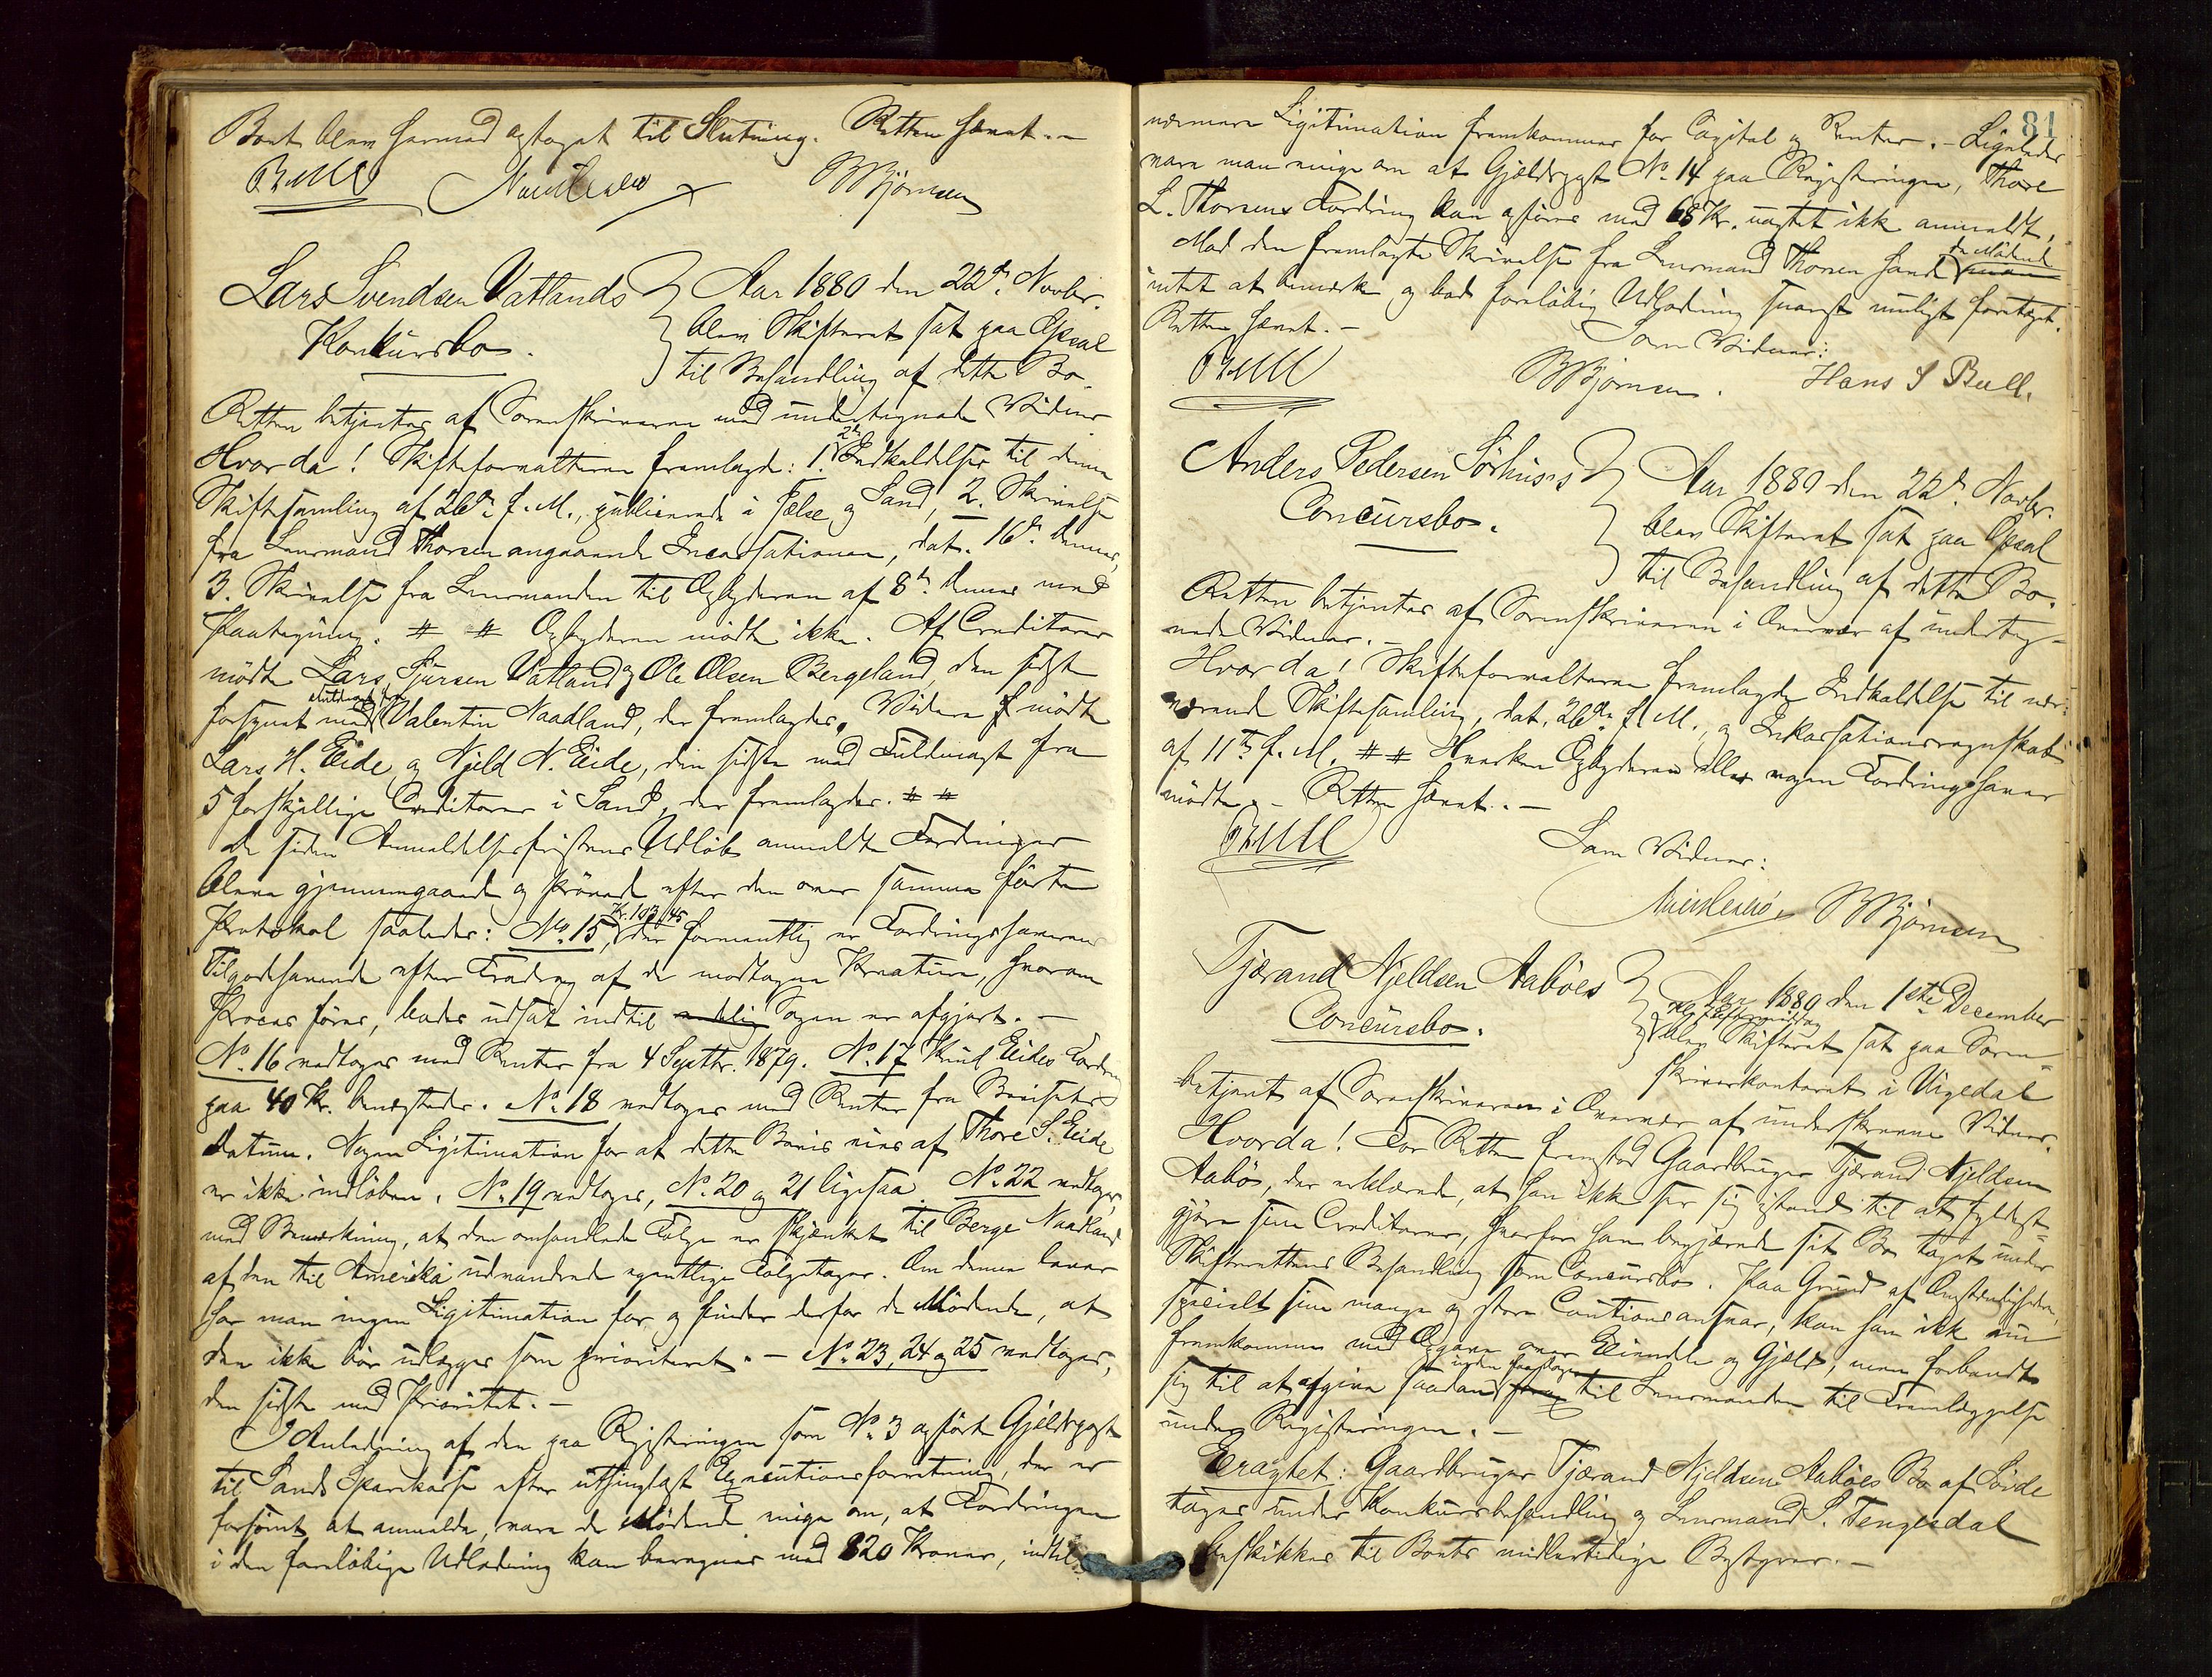 Boet blev hermed optaget til Slutning. Retten hævet. -
Bull BBjørnsen
Lars Svendsen Vatlands
Konkursbo.
Aar 1880 den 22de Novbr.
blev Skifteret sat paa Opsal
til Behandling af dette Bo.
Retten betjentes af Sorenskriveren med undertegnede Vidner
Hvorda! Skifteforvalteren fremlagde: 1. 2de Indkaldelser til denne
Skiftesamling af 26de f. M., publicerede i Jelse og Sand, 2. Skrivelse
fra Lensmand Thorsen angaaende Incassationen, dat. 16de dennes,
3. Skrivelse fra Lensmanden til Opbyderen af 8de dennes med
Paategning. # # Opbyderen mødte ikke. Af Creditorer
mødte Lars Sjursen Vatland og Ole Olsen Bergeland, den sidste
forsynet med Fuldmagt fra Valentin Naadland, der fremlagdes. Videre mødte
Lars H. Eide og Njeld N. Eide, den sidste med Fuldmagt fra
5 forskjellige Creditorer i Sand, der fremlagdes. # #
De siden Anmeldelsesfristens Udløb anmeldte Fordringer
bleve gjennemgaaede og prøvede efter den over samme førte
Protokol saaledes: No. 15, Kr. 103,45 der formentlig er Fordringshaverens
Tilgodehavende efter Fradrag af de modtagne Kreature, hvorom
Proces føres, bades udsat indtil Sagen er afgjort. -
No. 16 vedtoges med Renter fra 4 Septbr. 1879. No. 17 Knud Eides Fordring
paa 40 Kr. benegtedes. No. 18 vedtoges med Renter fra Bevisets
Datum. Nogen Ligitimation for at dette Bevis eies af Thore S. Eide
er ikke indløben. No. 19 vedtoges, No. 20 og 21 ligesaa. No. 22 vedtoges,
med Bemærkning, at den omhandlede Følge er skjænket til Berge Naadland
af den til Amerika udvandrede egentlige Følgetager. Om denne lever
har man ingen Ligitimation for og finder derfor de Mødende, at
den ikke bør udlægges som prioriteret. - No. 23, 24 og 25 vedtoges,
den sidste med Prioritet. -
I Anledning af den paa Registeringen som No. 3 opførte Gjeldspost
til Sands Sparekasse efter uthinglæst Executionsforretning, der er
forsømt at anmelde, vare de Mødende enige om, at Fordringen
i den foreløbige Udlodning kan beregnes med 820 Kroner, indtil
81
nærmere Ligitimation fremkommer for Capital og Renter. - Ligeledes
vare man enige om at Gjældspost No. 14 paa Registeringen, Thore
L. Thorsens Fordring kan opføres med 68 Kr. uagtet ikke anmeldt.
Mod den fremlagte Skrivelse fra Lensmand Thorsen havde de Mødende
intet at bemærke og bad foreløbig Udlodning snarest muligt foretaget.
Retten hævet. -
Som Vidner:
Bull BBjørnsen. Hans S Bull.
Anders Pedersen Sørhuses
Concursbo.
Aar 1880 den 22de Novbr.
blev Skifteret sat paa Opsal
til Behandling af dette Bo.
Retten betjentes af Sorenskriveren i Overvær af underteg-
nede Vidner. -
Hvorda! Skifteforvalteren fremlagde Indkaldelse til nær-
værende Skiftesamling, dat. 26de f. M., og Inkassationsregnskab
af 11te f. M. # # Hverken Opbyderen eller nogen Fordringshaver
mødte. - Retten hævet. -
Bull
Som Vidner:
BBjørnsen
Tjærand Njeldsen Aabøes
Concursbo.
Aar 1880 den 1ste December
Kl. 7 Eftermiddag
blev Skifteret sat paa Soren-
skriverkontoret i Vigedal
betjent af Sorenskriveren i Overvær af underskrevne Vidner.
Hvorda! For Retten fremstod Gaardbruger Tjærand Njeldsen
Aabøe, der erklærede, at han ikke ser sig istand til at fyldest-
gjøre sine Creditorer, hvorfor han begjærede sit Bo taget under
Skifterettens Behandling som Concursbo. Paa Grund af Omstændigheder,
specielt sine mange og store Cautionsansvar, kan han ikke nu
fremkomme med Opgave over Eiendele og Gjæld, men forbandt
sig til at afgive saadan inden faa Dage til Lensmanden til Fremlæggelse
under Registeringen. -
Eragtet: Gaardbruger Tjærand Njeldsen Aabøes Bo af Søvde
tages under Konkursbehandling og Lensmand S. Tengesdal
beskikkes til Boets midlertidige Bestyrer. -